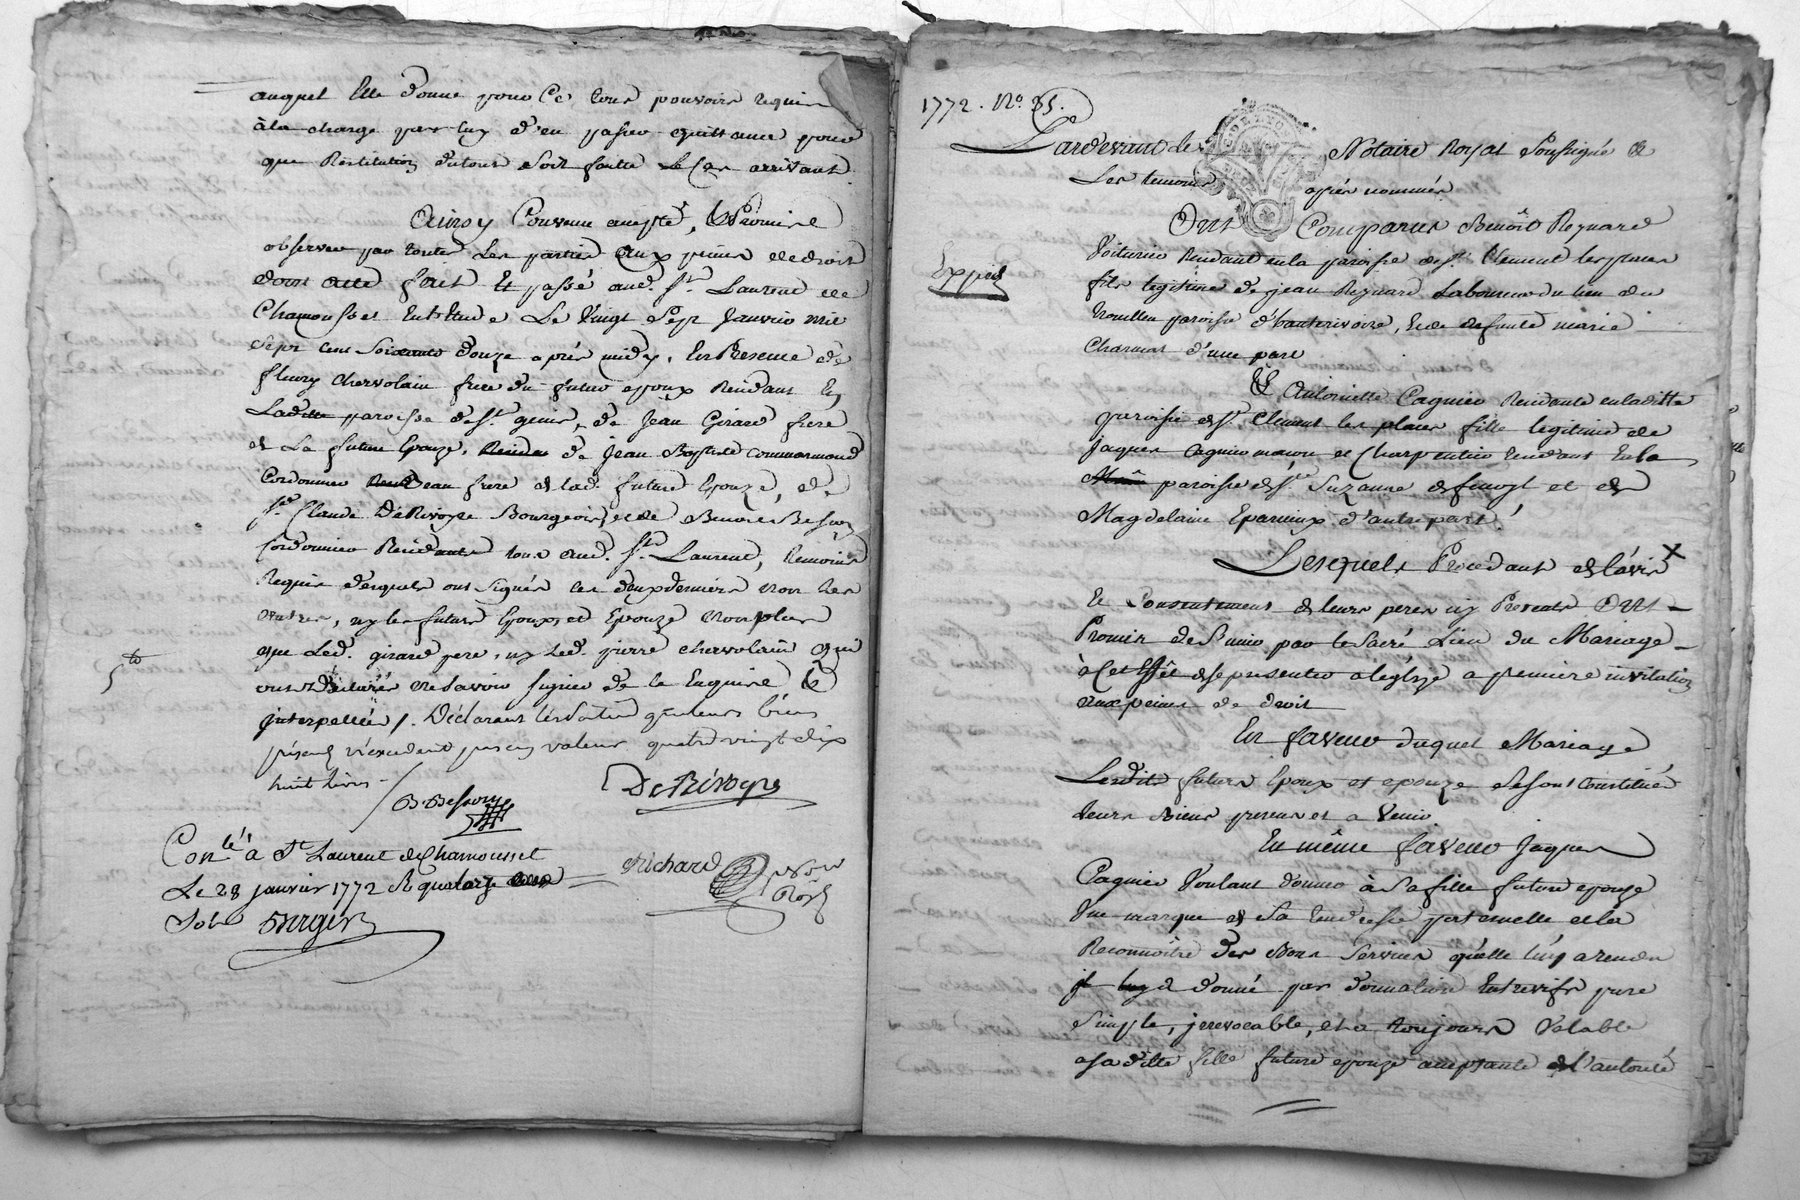 auquel Elle donne pour Ce tous pouvoirs requis
à la charge par luy d'en passer quittance pour
que Restitution du tout soit faitte le Cas arrivant
Ainsy Convenu accepté, & Promis
observer par toutes Les parties aux peines de droit
dont acte fait Et passé aud. St. Laurent de
Chamousset En Etude Le Vingt Sept Janvier mil
Sept Cent Soixante douze après midy, En Presence de
fleury Chervolain frere du futur epoux Residant En
Laditte paroisse de St. genis, de Jean Girard frere
de La future Epouze, de Jean Baptiste Commarmond
Cordonnier beau frere de lad. future Epouze, de
Sr. Claude DeRivoyre Bourgeois, et de Benoit Besson
Cordonnier Residants tous aud. St. Laurent, temoins
Requis desquels ont signés les deux derniers non les
autres, ny les futurs Epoux et Epouze non plus
que Led. girard pere, ny Led. pierre chervolain qui
ont déclarés ne savoir signer de ce Enquis &
5te
interpellés /. Déclarant que leurs biens
présents n'excedent pas en valeur quatre vingt dix
huit livres
B. Besson
DeRivoyre
Conlé à St Laurent de Chamousset
Le 28 janvier 1772 R quatorze
Richard
sols
1772. No. 35.
Pardevant le Notaire Royal Soussigné &
Les temoins après nommés
Ont Comparus Benoît Reynard
Voiturier Residant en la paroisse de St. Clement les places
Exped
fils legitime de jean Reynard Laboureur du lieu du
paroisse d'hauterivoire, & de defunte marie
Charmat d'une part
& Antoinette Cagnier Residante en laditte
paroisse de St. Clement les places fille legitime de
Jaques Cagnier macon et Charpentier Residant En la
paroisse de Ste. Suzanne et de
Magdelaine Eparvieux d'autre part
Lesquels Procedant de l'avis X
Et Consentement de leurs peres icy Presents Ont
Promis de S'unir par le Sacré Lien du Mariage
à Cet Effêt de se presenter a l'eglize a premiere invitation
aux peines de droit
En faveur duquel Mariage
Lesdits futurs Epoux et epouze se sont Constitués
leurs Biens presens et a Venir
En même faveur Jaques
Cagnier Voulant donner à Sa fille future epouze
Une marque de Sa tendresse paternelle et la
Reconnoître des Bons Services qu'elle luy a rendu
il luy a donné par donnation Entrevifs pure
Simple, irrevocable, et a toujours Valable
a sa ditte fille future epouze acceptante de l'autorité